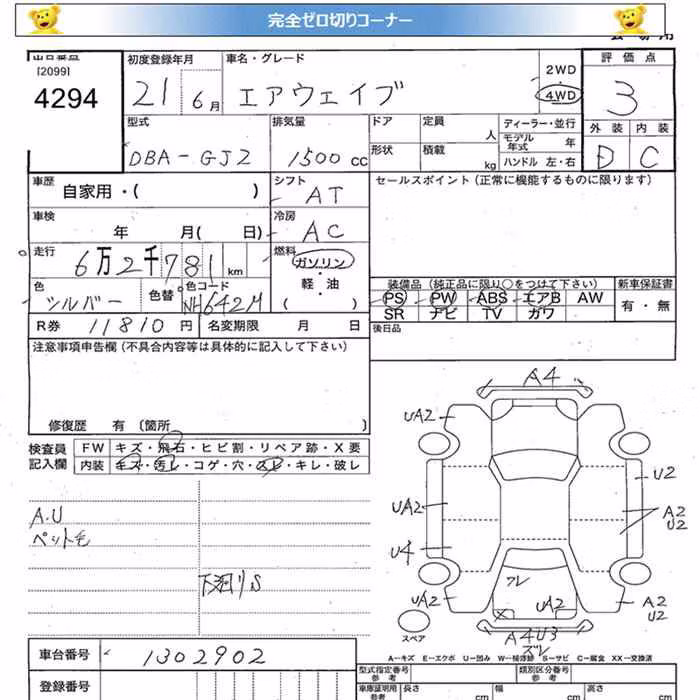 完全ゼロ切りコーナー
出品番号
[2099]
4294
初度登録年月
21 6月
車名・グレード
エアウェイブ
2WD
4WD
評価点
3
外装 内装
D C
型式
DBA-GJ2
排気量
1500 cc
ドア
形状
定員
人
積載
kg
ディーラー・並行
モデル年式 年
ハンドル 左・右
車歴
自家用・( )
シフト
AT
セールスポイント(正常に機能するものに限ります)
車検
年 月( 日)
冷房
AC
走行
6万2千781 km
燃料
ガソリン
軽・油
( )
色
シルバー
色替
色コード
NH642M
装備品(純正品に限り○をつけて下さい)
新車保証書
PS PW ABS エアB AW
SR ナビ TV ガワ
有・無
R券 11810 円
名変期限 月 日
後日品
注意事項申告欄(不具合内容等は具体的に記入して下さい)
修復歴 有〔箇所 〕
検査員
記入欄
FW キズ・飛石・ヒビ割・リペア跡・X要
内装 キズ・汚レ・コゲ・穴・スレ・キレ・破レ
A.U
ペット毛
下廻りS
A4
UA2
UA2
U4
UA2
U2
A2
U2
A2
U2
スレ
UA2
X
A4U3
ズレ
スペア
A-キズ E-エクボ U-凹み W-補修跡 S-サビ C-腐食 XX-交換済
車台番号
1302902
登録番号
型式指定番号
参考
類別区分番号
参考
車庫証明用
参考
長さ
cm
幅
cm
高さ
cm